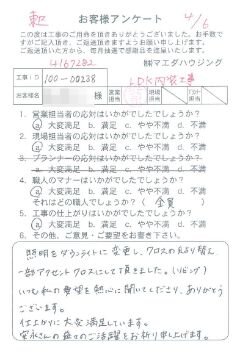 東広 お客様アンケート 4/6
この度は工事のご用命を頂きありがとうございました。お手数で
すがご記入頂き、ご返送頂きますようお願い申し上げます。
ご返送頂いた方から、毎月抽選で感謝品を進呈いたします。
4167282 ㈱マエダハウジング
工事ID 100-00238 LDK内装工事
お客様名 様 営業担当 現場担当 工事担当
1. 営業担当者の応対はいかがでしたでしょうか?
a. 大変満足 b. 満足 c. やや不満 d. 不満
2. 現場担当者の応対はいかがでしたでしょうか?
a. 大変満足 b. 満足 c. やや不満 d. 不満
3. プランナーの応対はいかがでしたでしょうか?
a. 大変満足 b. 満足 c. やや不満 d. 不満
4. 職人のマナーはいかがでしたでしょうか?
a. 大変満足 b. 満足 c. やや不満 d. 不満
それはどの職人でしょうか?( 全員 )
5. 工事の仕上がりはいかがでしたでしょうか?
a. 大変満足 b. 満足 c. やや不満 d. 不満
6. その他、ご意見・ご要望をお書き下さい。
照明をダウンライトに変更し、クロスの貼り替え
一部アクセントクロスにして頂きました。(リビング)
いつも私の要望を熱心に聞いてくださり、ありがとう
ございます。
仕上がりに大変満足しています。
益々のご活躍をお祈り申し上げます。